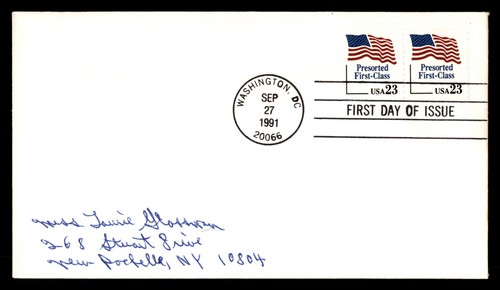 Presorted First-Class USA 23
Presorted First-Class USA 23
WASHINGTON, DC
SEP
27
1991
20066
FIRST DAY OF ISSUE
Miss Laurie Glassman
268 Stuart Drive
New Rochelle, NY 10804